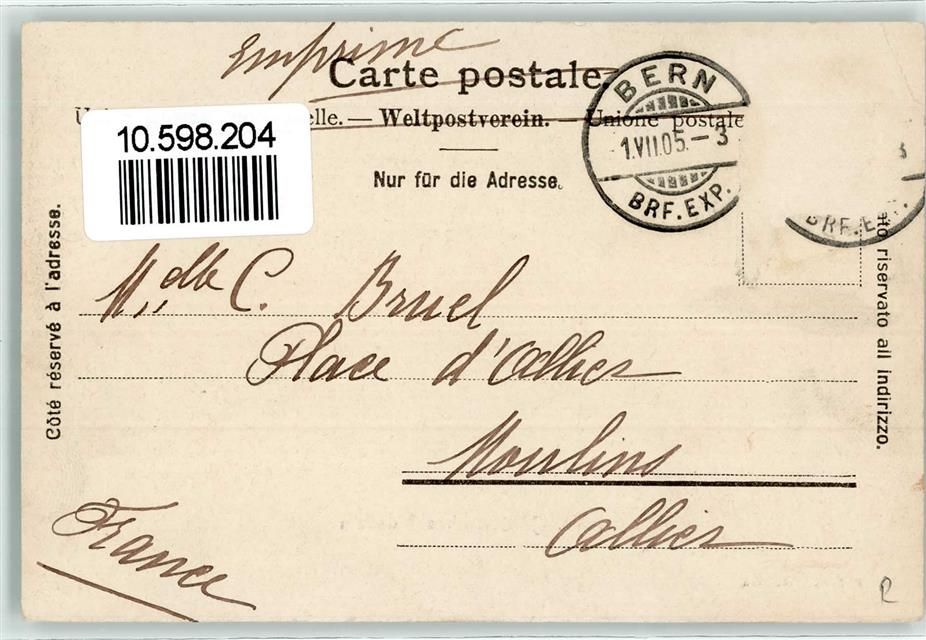 Imprimé
Carte postale
U elle. — Weltpostverein. — Unione postale
10.598.204
Nur für die Adresse.
BERN
1.VII.05.–3
BRF.EXP.
3
BRF.E
Côté réservé à l'adresse.
ato riservato all indirizzo.
Melle C. Bruel
Place d'Allier
Moulins
Allier
France
R